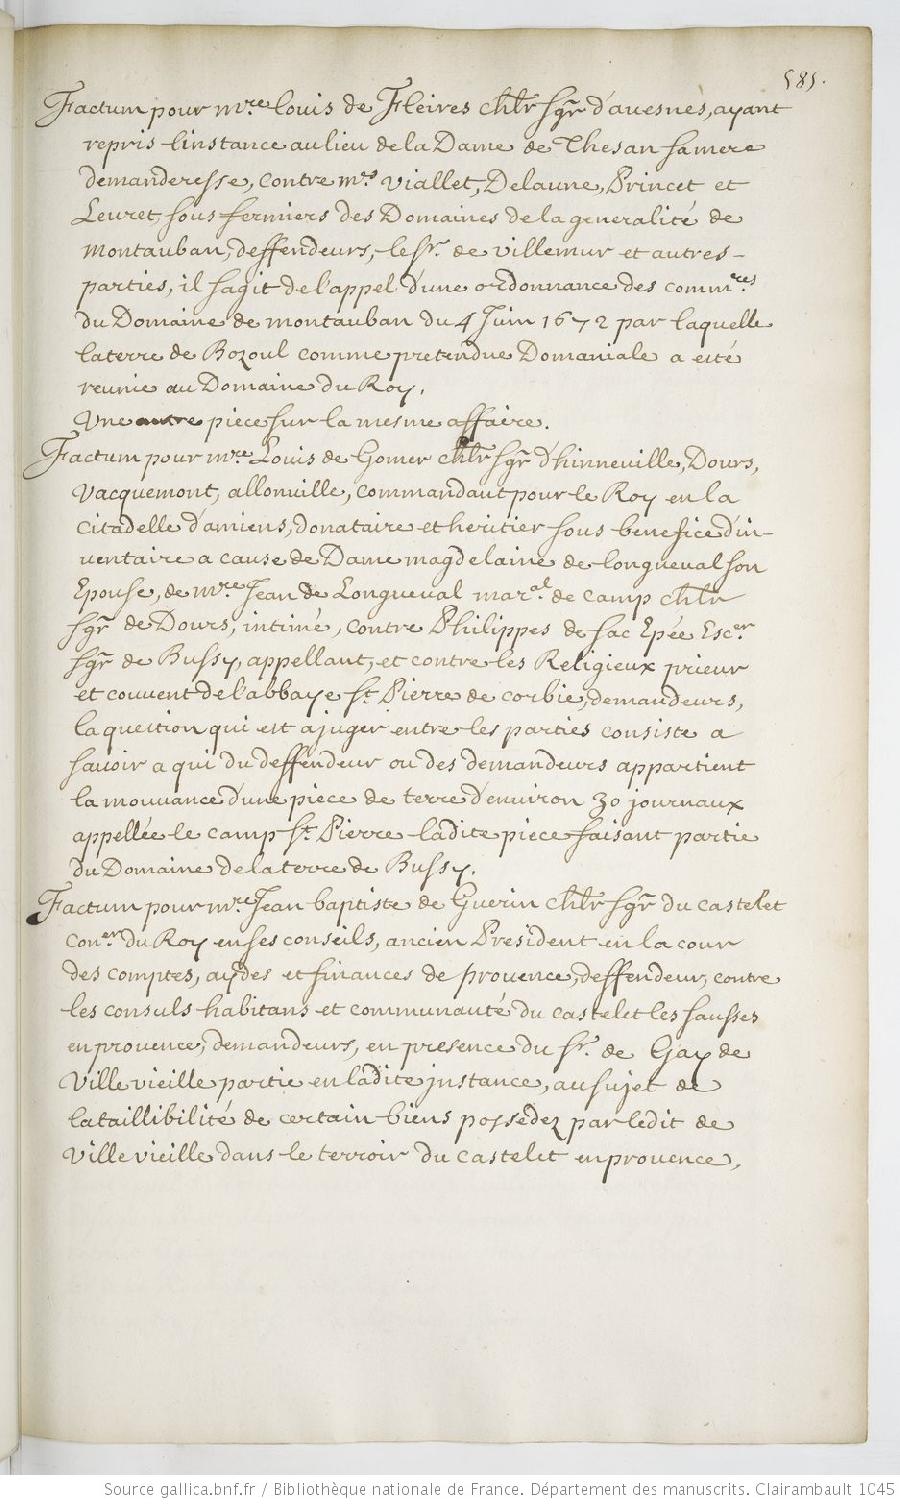 585.
Factum pour mre. Louis de Fleires chlr sgr d'avesnes, ayant
repris linstance au lieu de la Dame de Thesan sa mere
demanderesse, contre mrs Viallet, Delaune, Princet et
Leuret, sous fermiers des Domaines de la generalité de
Montauban, deffendeurs, le sr. de Villemur et autres
parties, il sagit de l'appel d'une ordonnance des commres
du Domaine de montauban du 4 Juin 1672 par laquelle
la terre de Bozoul comme pretendue Domaniale a esté
reunie au Domaine du Roy.
Une autre piece sur la mesme affaire.
Factum pour mre. Louis de Gomer chlr sgr d'hinneville, Dours,
Vacquemont, allonville, commandant pour le Roy en la
Citadelle d'amiens, donataire et heritier sous benefice d'in-
ventaire a cause de Dame magdelaine de longueval son
Epouse, de mre. Jean de Longueval maral. de camp chlr
sgr de Dours, intimé, contre Philippes de sac Epée Escer
sgr de Bussy, appellant, et contre les Religieux prieur
et couvent de l'abbaye St. Pierre de corbie, demandeurs,
la question qui est a juger entre les parties consiste a
savoir a qui du deffendeur ou des demandeurs appartient
la mouvance d'une piece de terre d'environ 30 journaux
appellée le camp St. Pierre ladite piece faisant partie
du Domaine de la terre de Bussy.
Factum pour mre. Jean baptiste de Guerin chlr sgr du castelet
coner. du Roy en ses conseils, ancien President en la cour
des comptes, aydes et finances de provence, deffendeur, contre
les consuls habitans et communauté du castelet les sausses
en provence, demandeurs, en presence du sr. de Gay de
Ville vieille partie en ladite instance, au sujet de
la taillibilité de certain biens possedez par ledit de
Ville vieille dans le terroir du castelet en provence.
Source gallica.bnf.fr / Bibliothèque nationale de France. Département des manuscrits. Clairambault 1045